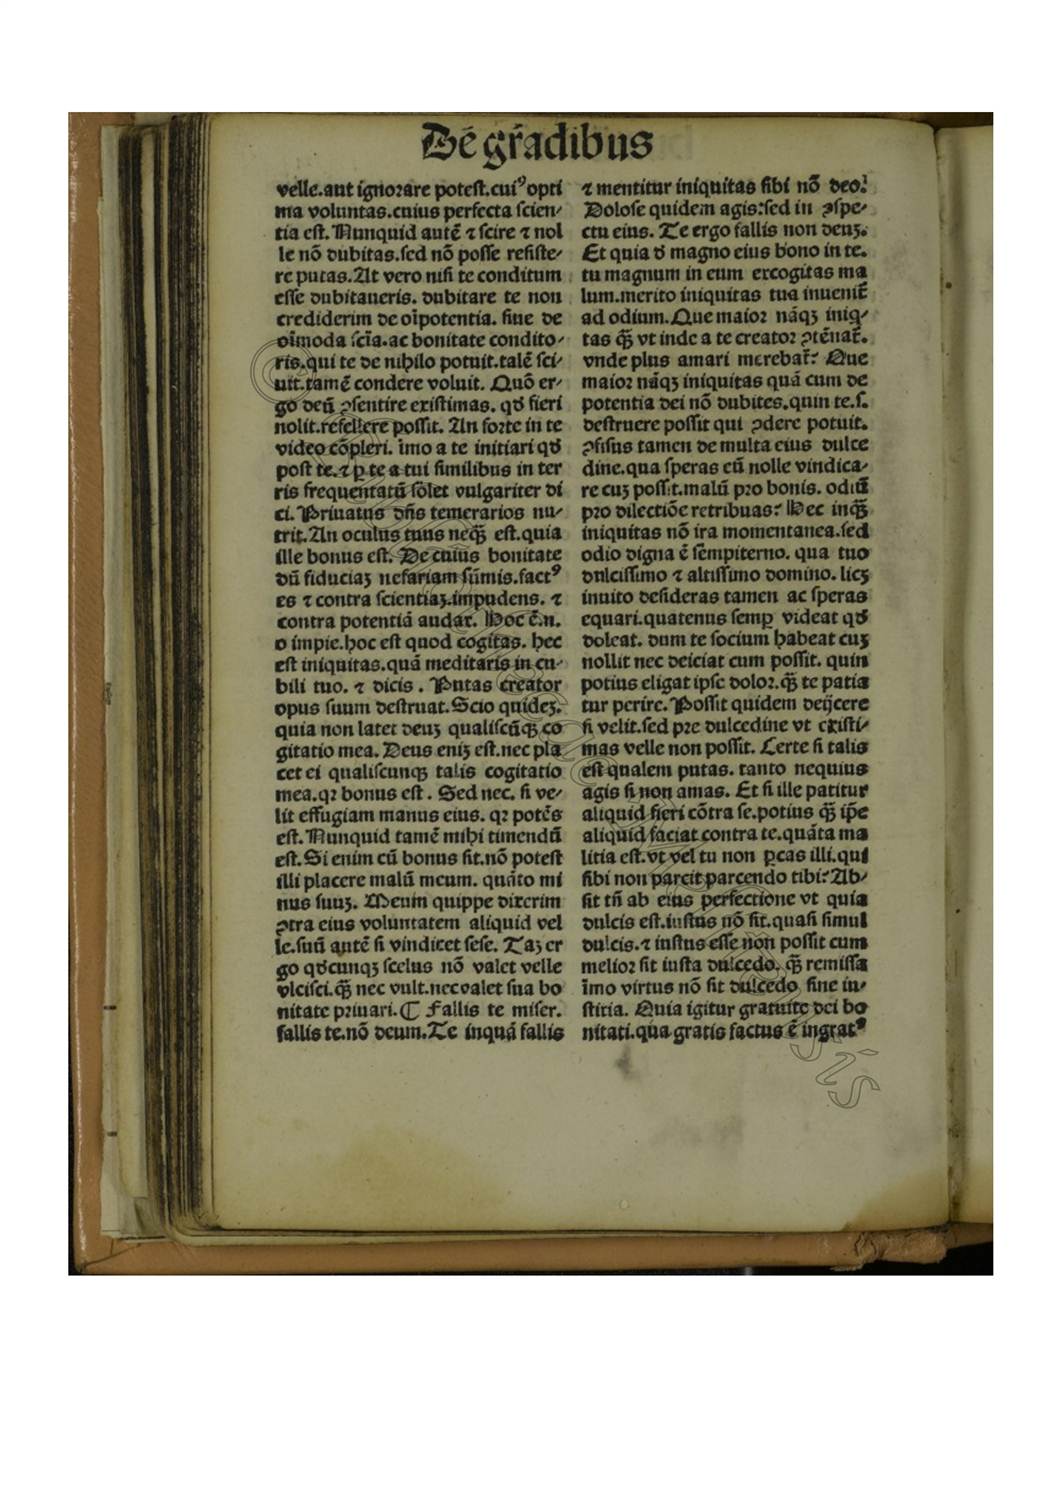 Dē gr̄adibus
velle.aut ignorare potest.cuiꝰ opti
ma voluntas.cuius perfecta scien⸗
tia est. Nunquid autē ⁊ scire ⁊ nol
le nō dubitas.sed nō posse resiste⸗
re putas. At vero nisi te conditum
esse dubitaueris. dubitare te non
crediderim de oīpotentia. siue de
oīmoda scīa.ac bonitate condito⸗
ris.qui te de nihilo potuit.talē sci⸗
uit.tamē condere voluit. Quō er⸗
go deū ꝯsentire existimas. qđ fieri
nolit.refellere possit. An forte in te
video cōpleri. imo a te initiari qđ
post te.⁊ ꝑ te a tui similibus in ter
ris frequentatū sōlet vulgariter di
ci. Priuatus dn̄s temerarios nu⸗
trit. An oculus tuus neqꝫ̄ est.quia
ille bonus est. De cuius bonitate
dū fiduciaꝫ nefariam sūmis.factꝰ
es ⁊ contra scientiaꝫ.impudens. ⁊
contra potentiā audax. Hoc ē.n.
o impie.hoc est quod cogitas. hec
est iniquitas.quā meditaris in cu⸗
bili tuo. ⁊ dicis. Putas creator
opus suum destruat. Scio quideꝫ.
quia non latet deuꝫ qualiscūqꝫ co
gitatio mea. Deus eniꝫ est.nec pla
cet ei qualiscunqꝫ talis cogitatio
mea.qꝛ bonus est. Sed nec. si ve⸗
lit effugiam manus eius. qꝛ potēs
est. Nunquid tamē mihi timendū
est. Si enim cū bonus sit.nō potest
illi placere malū meum. quāto mi
nus suuꝫ. Meum quippe dixerim
ꝯtra eius voluntatem aliquid vel
le.suū autē si vindicet sese. Taꝫ er
go qđcunqꝫ scelus nō valet velle
vlcisci.qꝫ̄ nec vult.nec valet sua bo
nitate priuari. ¶ Fallis te miser.
fallis te.nō deum. Te inquā fallis
⁊ mentitur iniquitas sibi nō deo:
Dolose quidem agis:sed in ꝯspe⸗
ctu eius. Te ergo fallis non deuꝫ.
Et quia đ magno eius bono in te.
tu magnum in eum excogitas ma
lum.merito iniquitas tua inuenit̄
ad odium. Que maior nāqꝫ iniq⸗
tas qꝫ̄ vt inde a te creator ꝯtēnat̄.
vnde plus amari merebat̄? Que
maior nāqꝫ iniquitas quā cum de
potentia dei nō dubites.quin te.s.
destruere possit qui ꝯdere potuit.
ꝯfisus tamen de multa eius dulce
dine.qua speras eū nolle vindica⸗
re cuꝫ possit.malū pro bonis. odiū
pro dilectiōe retribuas? Hec inqꝫ̄
iniquitas nō ira momentanea.sed
odio digna ē sempiterno. qua tuo
dulcissimo ⁊ altissimo domino. licꝫ
inuito desideras tamen ac speras
equari.quatenus semꝑ videat qđ
doleat. dum te socium habeat cuꝫ
nollit nec deiciat cum possit. quin
potius eligat ipse dolor.qꝫ̄ te patia
tur perire. Possit quidem deijcere
si velit.sed pre dulcedine vt existi⸗
mas velle non possit. Certe si talis
est qualem putas. tanto nequius
agis si non amas. Et si ille patitur
aliquid fieri cōtra se.potius qꝫ̄ ip̄e
aliquid faciat contra te.quāta ma
litia est.vt vel tu non ꝑcas illi.qui
sibi non parcit parcendo tibi? Ab⸗
sit tn̄ ab eius perfectione vt quia
dulcis est.iustus nō sit.quasi simul
dulcis.⁊ iustus esse non possit cum
melior sit iusta dulcedo. qꝫ̄ remissa
īmo virtus nō sit dulcedo sine iu⸗
stitia. Quia igitur gratuite dei bo
nitati.qua gratis factus ē ingratꝰ